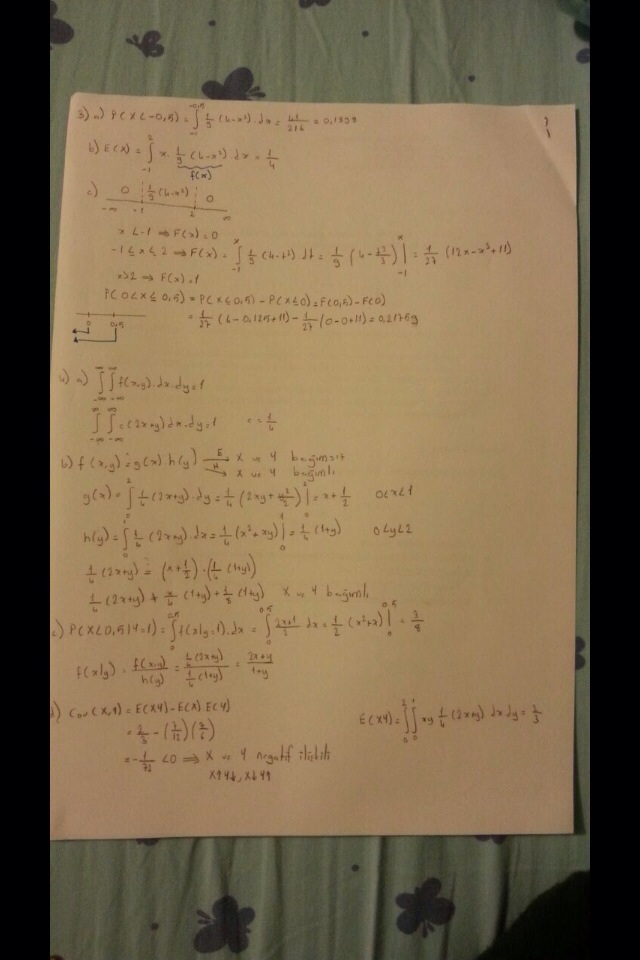 3) a) P(X<-0,5) = ∫_{-1}^{-0,5} 1/9 (4-x²).dx = 41/216 = 0,1898
b) E(X) = ∫_{-1}^{2} x. 1/9 (4-x²).dx = 1/4
f(x)
c) 0 1/9 (4-x²) 0
-∞ -1 2 ∞
x<-1 ⇒ F(x)=0
-1≤x≤2 ⇒ F(x) = ∫_{-1}^{x} 1/9 (4-t²).dt = 1/9 ( ) |_{-1}^{x} = 1/27 (12x-x³+11)
x>2 ⇒ F(x)=1
P(0<X≤0,5) = P(X≤0,5) - P(X≤0) = F(0,5)-F(0)
0 0,5 = 1/27 (6-0,125+11) - 1/27 (0-0+11) = 0,21759
4) a) ∫_{-∞}^{∞} ∫_{-∞}^{∞} f(x,y).dx.dy=1
∫_{-∞}^{∞} ∫_{-∞}^{∞} c(2x+y) dx.dy=1 c=1/4
b) f(x,y) = g(x) h(y) E→ X ve Y bağımsız
H→ X ve Y bağımlı
g(x) = ∫_{0}^{2} 1/4 (2x+y).dy = 1/4 (2xy + y²/2) |_{0}^{2} = x + 1/2 0<x<1
h(y) = ∫_{0}^{1} 1/4 (2x+y).dx = 1/4 (x²+xy) |_{0}^{1} = 1/4 (1+y) 0<y<2
1/4 (2x+y) = (x+1/2).(1/4 (1+y))
1/4 (2x+y) ≠ x/4 (1+y) + 1/8 (1+y) X ve Y bağımlı
c) P(X<0,5|Y=1) = ∫_{0}^{0,5} f(x|y=1).dx = ∫_{0}^{0,5} (2x+1)/2 dx = 1/2 (x²+x) |_{0}^{0,5} = 3/8
f(x|y) = f(x,y)/h(y) = (1/4 (2x+y))/(1/4 (1+y)) = (2x+y)/(1+y)
d) Cov(X,Y) = E(XY)-E(X).E(Y) E(XY) = ∫_{0}^{2} ∫_{0}^{1} xy 1/4 (2x+y) dx dy = 2/3
= 2/3 - (7/12)(7/6)
= -1/72 <0 ⇒ X ve Y negatif ilişkili
X↑Y↓, X↓Y↑